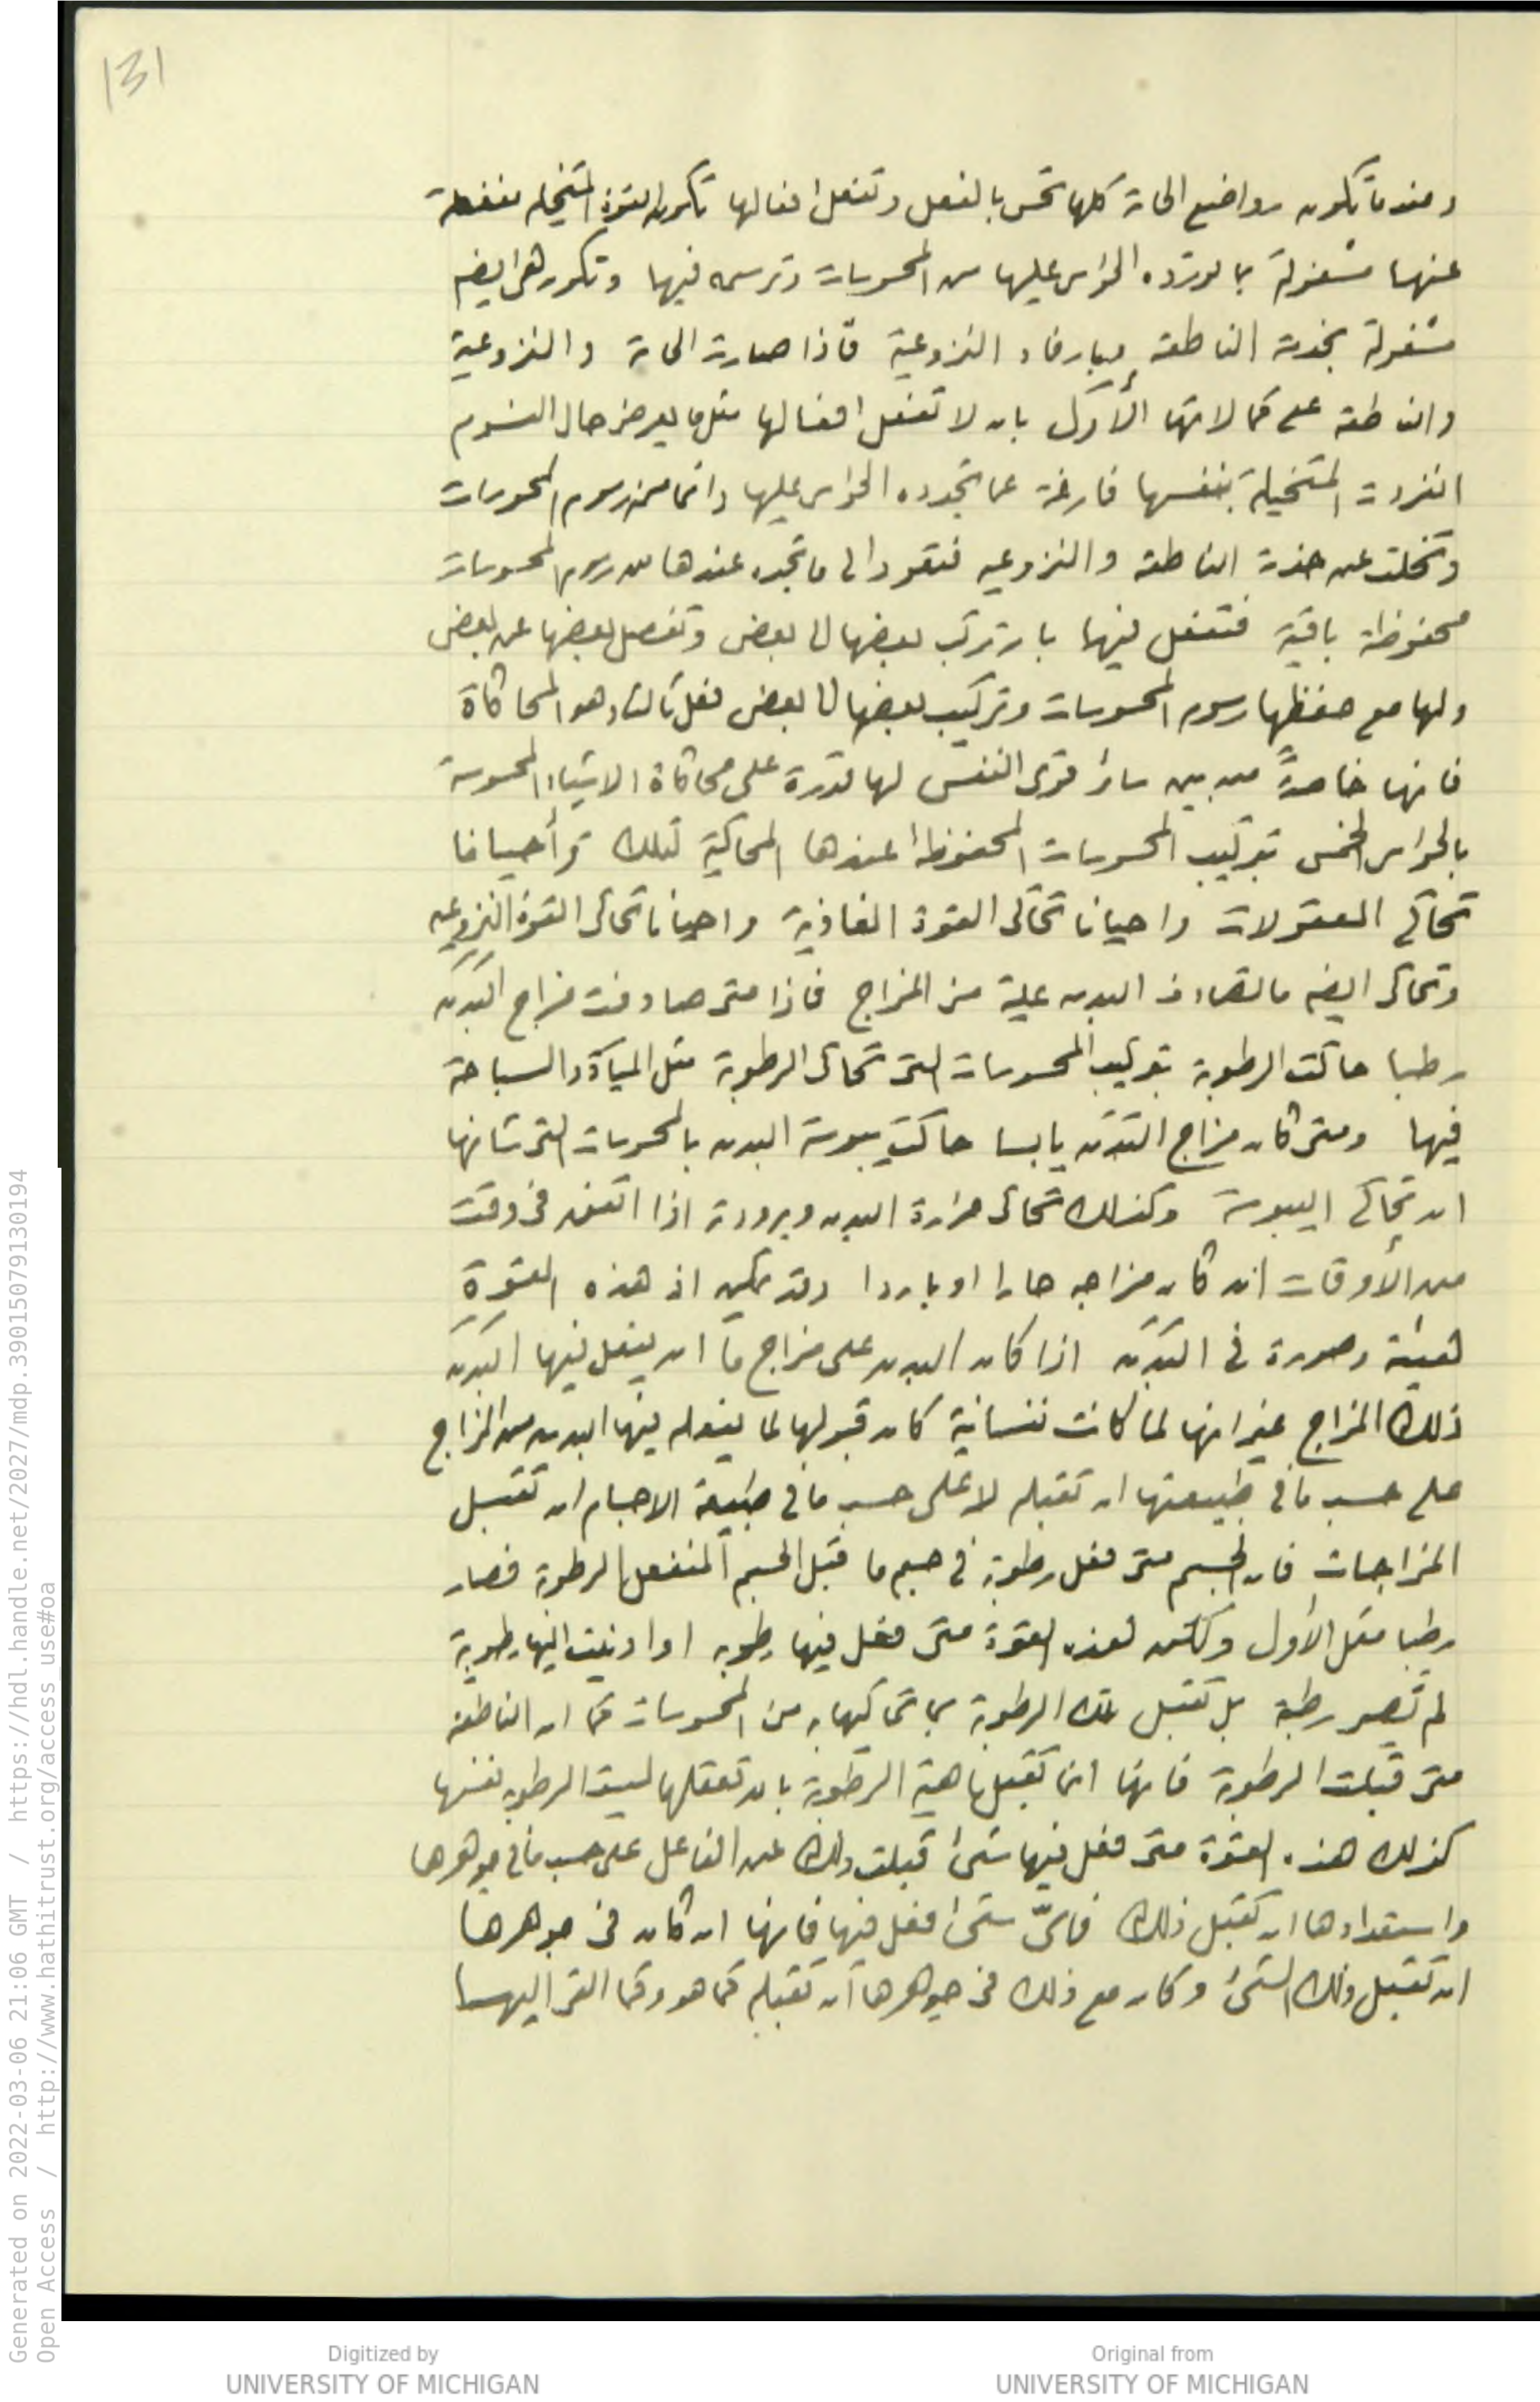 131
وعندما تكون رواضع الحاسة كلها تحس بالفعل وتفعل افعالها تكون القوة المتخيلة منفعلة
عنها مشغولة بما تورده الحواس عليها من المحسوسات وترسمه فيها وتكون هى ايضه
مشغولة بخدمة الناطقة وبارفاد النزوعية فاذا صارت الحاسة والنزوعية
والناطقة على كمالاتها الأول بان لا تفعل افعالها مثل ما يعرض حال النوم
انفردت المتخيلة بنفسها فارغة عما تجدده الحواس عليها دائما من رسوم المحسوسات
وتخلت عن خدمة الناطقة والنزوعيه فتعود الى ما تجده عندها من رسوم المحسوسات
محفوظة باقية فتفعل فيها بان تركب بعضها الى بعض وتفصل بعضها عن بعض
ولها مع حفظها رسوم المحسوسات وتركيب بعضها الى بعض فعل ثالث وهو المحاكاة
فانها خاصةً من بين سائر قوى النفس لها قدرة على محاكاة الاشياء المحسوسة
بالحواس الخمس بتركيب المحسوسات المحفوظة عندها المحاكية لتلك وأحيانا
تحاكى المعقولات واحيانا تحاكى القوة الغاذية واحيانا تحاكى القوة النزوعيه
وتحاكى ايضه ما تصادف البدن عليه من المزاج فاذا متى صادفت مزاج البدن
رطبا حاكت الرطوبة بتركيب المحسوسات التى تحاكى الرطوبة مثل المياة والسباحة
فيها ومتى كان مزاج البدن يابسا حاكت يبوسة البدن بالمحسوسات التى شانها
ان تحاكى اليبوسة وكذلك تحاكى حرارة البدن وبرودته اذا اتفق فى وقت
من الأوقات ان كان مزاجه حارا او باردا وقد يمكن اذ هذه القوة
هيئة وصورة فى البدن اذا كان البدن على مزاج ما ان يفعل فيها البدن
ذلك المزاج غير انها لما كانت نفسانية كان قبولها لما يفعله فيها البدن من المزاج
على حسب ما فى طبيعتها ان تقبله لا على حسب ما فى طبيعة الاجسام ان تقبل
المزاجات فان الجسم متى فعل رطوبة فى جسم ما قبل الجسم المنفعل الرطوبة فصار
رطبا مثل الأول ولكن هذه القوة متى فعل فيها رطوبه او ادنيت اليها رطوبة
لم تصير رطبة بل تقبل تلك الرطوبة بما تحاكيها به من المحسوسات كما ان الناطقه
متى قبلت الرطوبة فانها انما تقبل ماهية الرطوبة بان تعقلها ليست الرطوبه نفسها
كذلك هذه القوة متى فعل فيها شئ قبلت ذلك عن الفاعل على حسب ما فى جوهرها
واستعدادها ان تقبل ذلك فاىّ شئ فعل فيها فانها ان كان فى جوهرها
ان تقبل ذلك الشئ وكان مع ذلك فى جوهرها ان تقبله كما هو وكما القى اليها
Generated on 2022-03-06 21:06 GMT / https://hdl.handle.net/2027/mdp.39015079130194
Open Access / http://www.hathitrust.org/access_use#oa
Digitized by
UNIVERSITY OF MICHIGAN
Original from
UNIVERSITY OF MICHIGAN